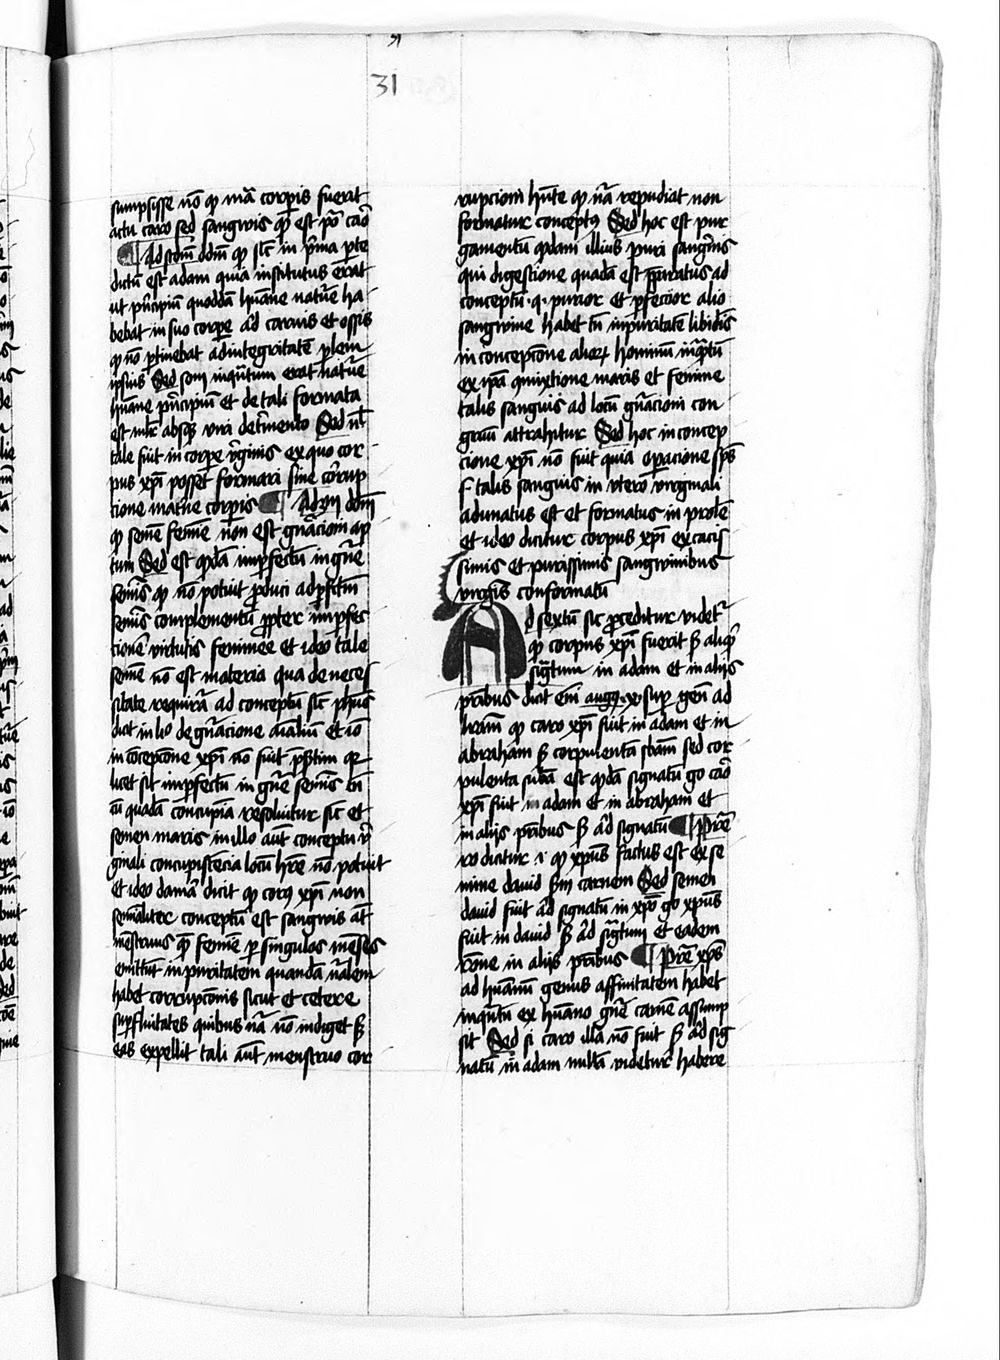 31
sumpsisse nō ꝙ mā corpis fuerit
actu caro sed sangwis qͥ est pō cāō
¶ Ad scdm̄ dōm ꝙ sic̄ in p̄ma pte
dictū est adam quia institutus erat
ut pͥncipiū quoddā humāne natūe ha
bebat in suo corpe ad carnis et ossis
ꝙ nō ptinebat ad integritatē psalem
ipsius Sed sem̄ inqͣntum erat natūe
humāne pͥncipiū et de tali formata
est mlr̄ absqꝫ viri detͥmento Sed nl̄
tale fuit in corpe vͥginis ex quo cor
pus xpī posset formari sine corrup
tione matͥne corpis ¶ Ad 3m dōm
ꝙ semē femīe non est gnāciom̄ ap
tum Sed est qͦdā impfectū in gnͤe
semīs ꝙ nō potuit pduci ad pfctm̄
semīs complementū ppter impfec
tionē virtutis feminee et ideo tale
semē nō est materia qua de neces
sitate requirāt ad conceptū sic̄ phūs
dicit in lio de gnͣacione aīaliū et iō
in cōcepcōne xpī nō fuit pͥsertim qꝛ
licet sit impfectū in gnͤe semīs tn̄
cū quadā concupīa resoluitur sic̄ et
semen maris in illo aūt conceptu vͥ
ginali concupiscēcia locū hre nō potuit
et ideo damā dicit ꝙ corꝰ xpī non
semīaliter conceptū est sangwis aūt
mēstruus qͥ femīe p singulos mēses
emittūt inpuritatem quandā nͣlem
habet corrupcōnis sicut et cetere
supfluitates quibus nāͣ nō indiget sꝫ
eas expellit tali aūt menstruo cor
rupciom̄ hn̄te ꝙ nāͣ repudiat non
formatur conceptꝰ Sed hoc est pur
gamentū qͦdam illius puri sangīnis
qui digestione quadā est pparatus ad
conceptū .q. purior et pfectior alio
sangwine habet tn̄ inpuritatē libidīs
in concepcōne alioꝝ hominū inqͣtū
ex ipā ꝯmixtione maris et femine
talis sanguis ad locū gnͣaciom̄ con
gruū attrahitur Sed hoc in concep
cione xpī nō fuit quia opacione spūs
s talis sanguis in vtero virginali
adunatus est et formatus in prolē
et ideo dicitur corpus xpī ex castis
simis et purissimis sangwinibus
virgīs conformatū
Ad sextū sic pceditur videtͬ
ꝙ corpus xpī fuerit s aliqͥd
signͣtum in adam et in alijs
pͣribus dicit em̄ augꝰ x sup gen̄ ad
lrām ꝙ caro xpī fuit in adam et in
abraham s corpulentā sbam̄ sed cor
pulenta subāͣ est qͦdā signatū gͦ cāō
xpī fuit in adam et in abraham et
in alijs pͣribus s ad signatū ¶ Prē
ro dicitur i ꝙ xpūs factus est ex se
mine dauid sm̄ carnem Sed semen
dauid fuit ad signatū in xpō gͦ xpūs
fuit in dauid s ad signͣtum et eadem
rōne in alijs pͣribus ¶ Prē xpūs
ad humānū genus affinitatem habet
inqͣntū ex humāno gnͤe carnē assump
sit Sed si caro illa nō fuit s ad sig
natū in adam nullā videtur habere